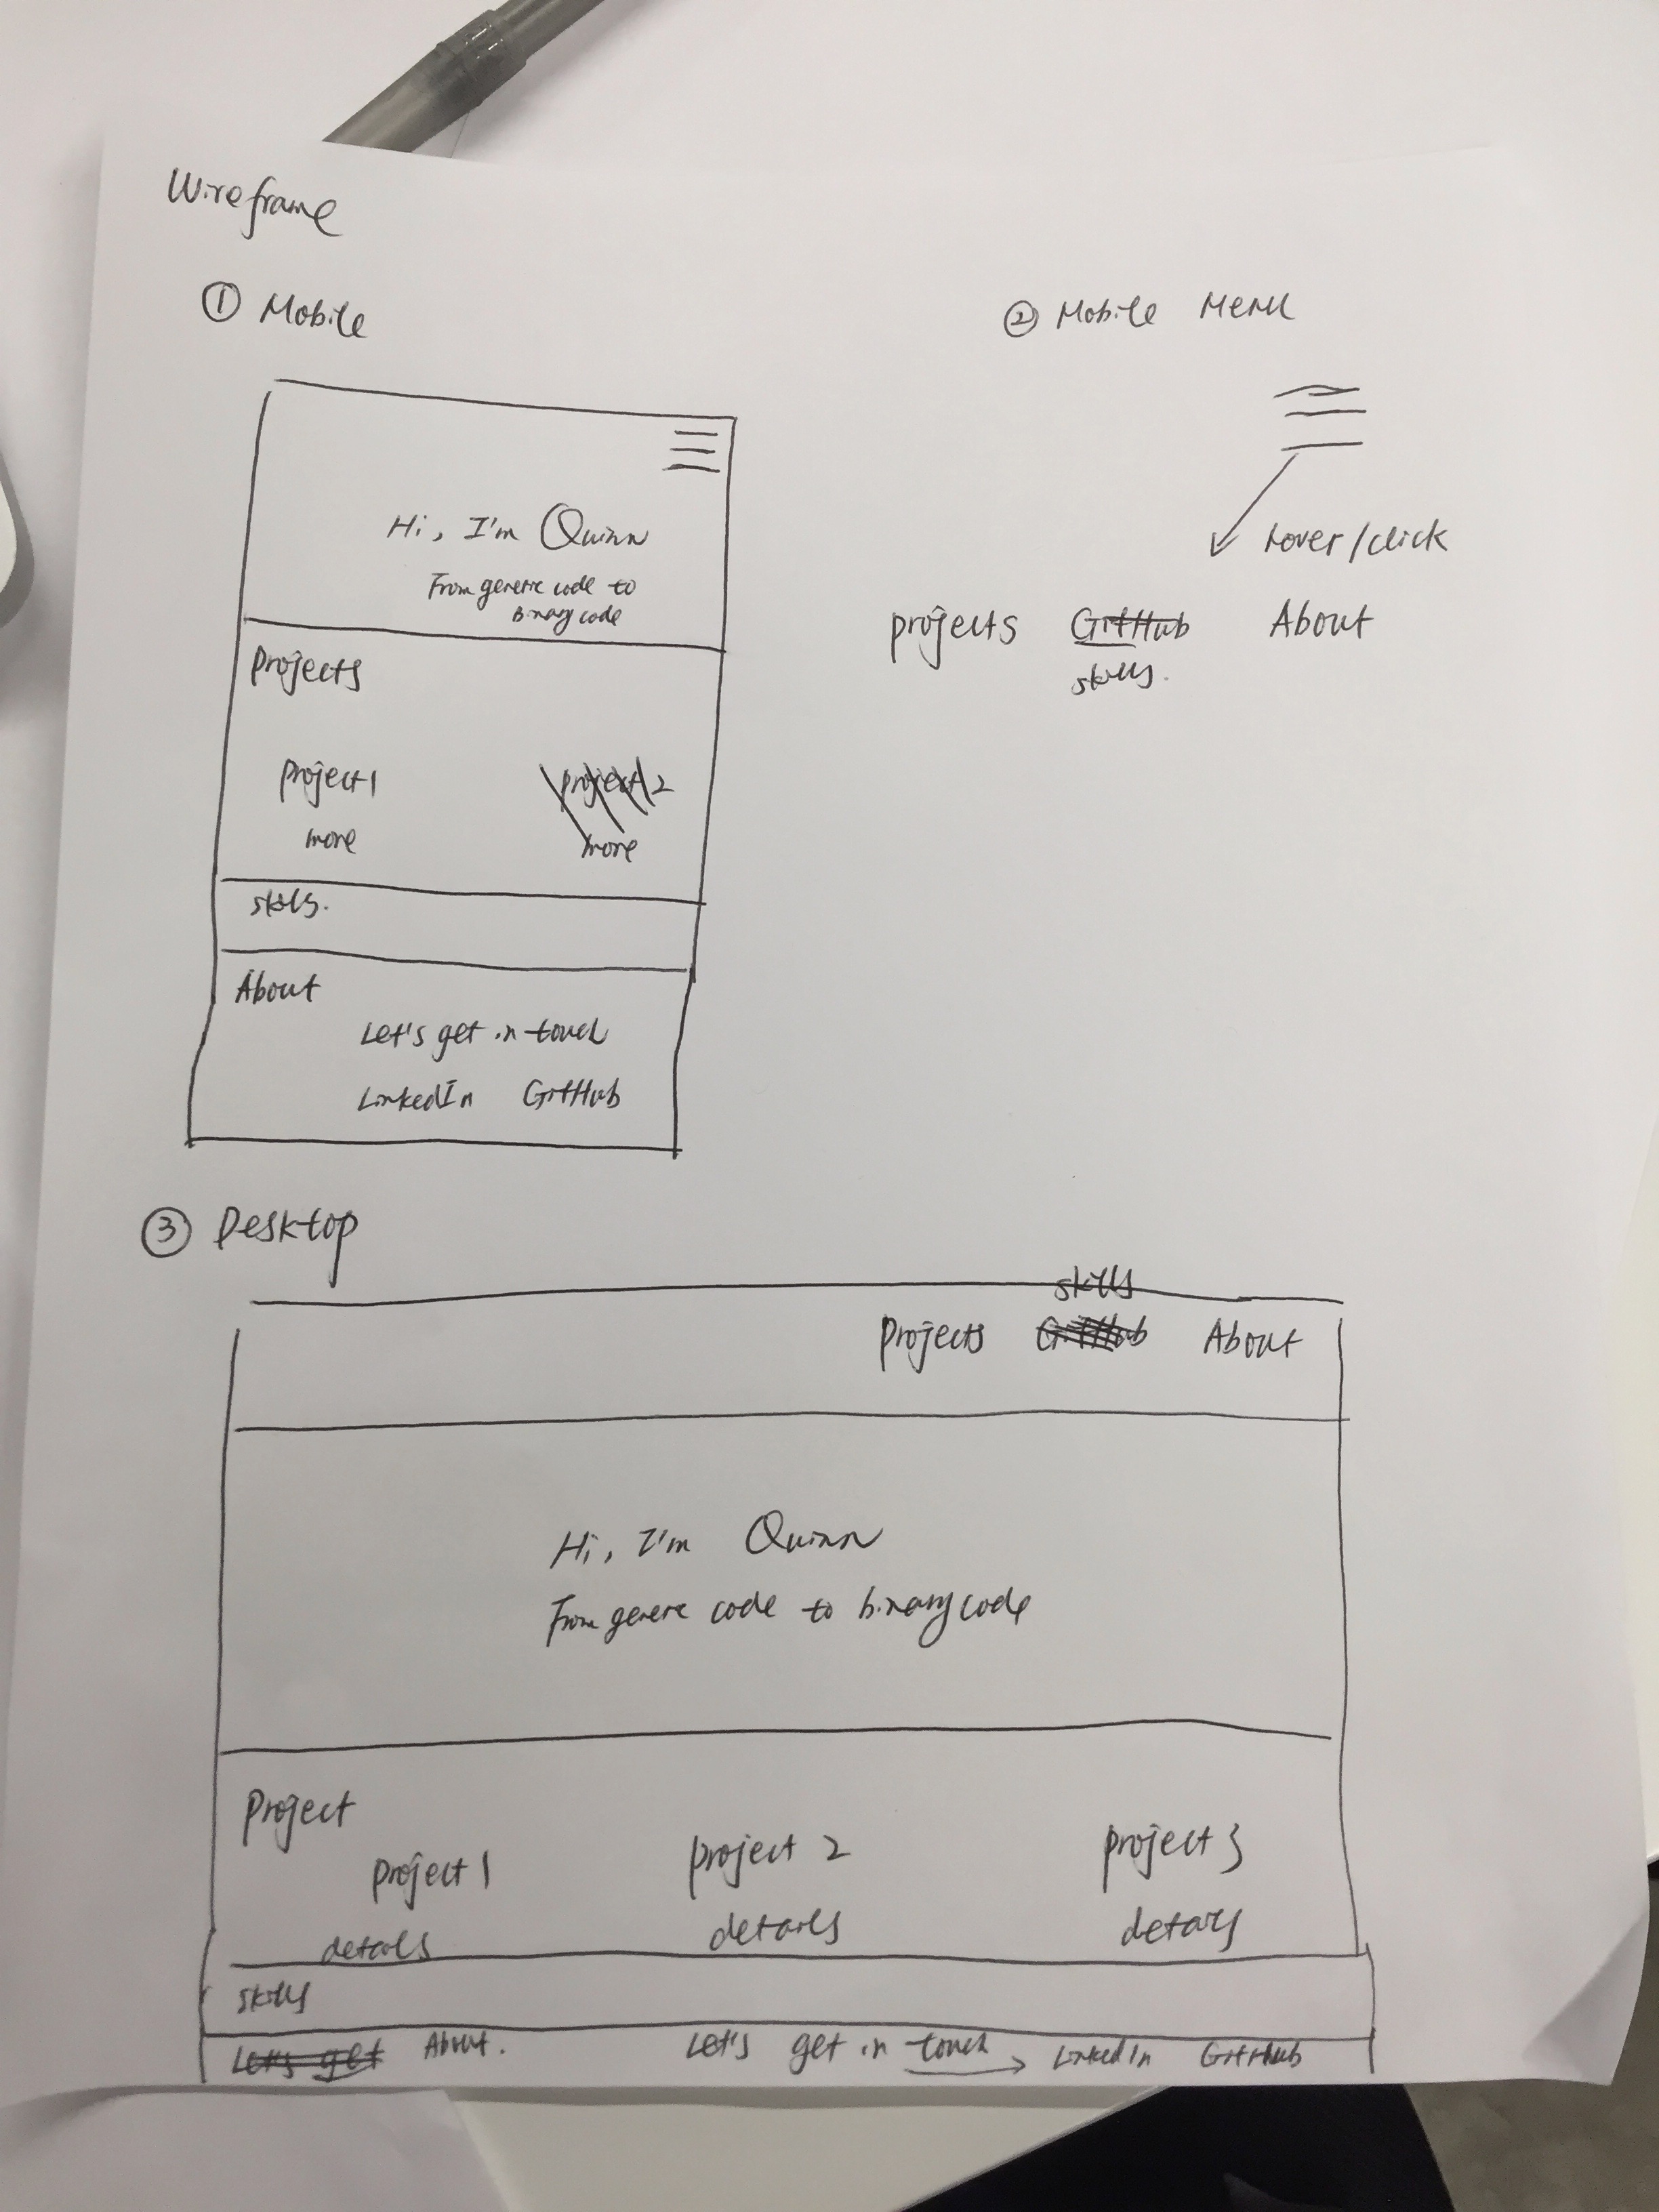 Wireframe
① Mobile
Hi, I'm Quinn
From genetic code to
Binary code
Projects
Project 1
Project 2
more
more
skills.
About
Let's get in touch
LinkedIn GitHub
② Mobile Menu
hover/click
projects GitHub About
skills.
③ Desktop
skills
Projects GitHub About
Hi, I'm Quinn
From genetic code to binary code
Project
project 1 project 2 project 3
details details details
skills
Let's get About. Let's get in touch LinkedIn GitHub